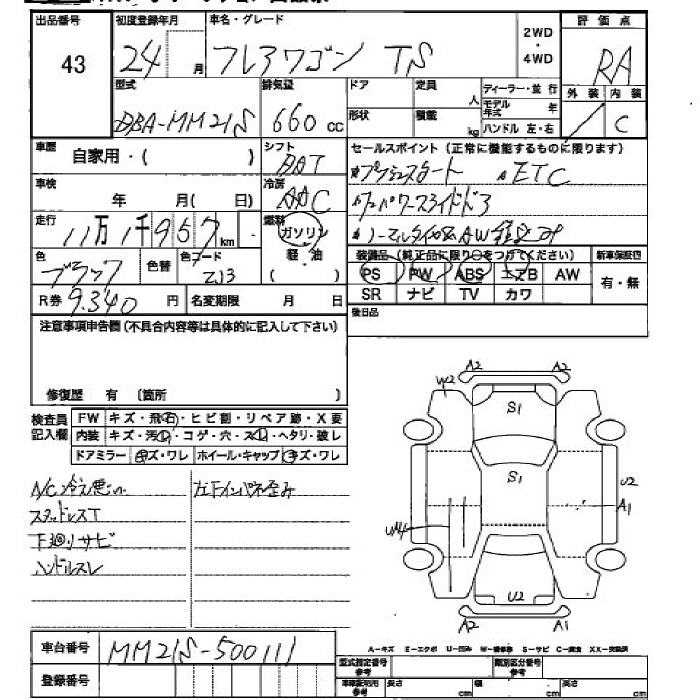 出品番号 43
初度登録年月 24 月
車名・グレード フレアワゴン TS
2WD・4WD
評価点 RA
外装 / 内装 C
型式 DBA-MM21S
排気量 660 cc
ドア 形状
定員 人 積載 kg
ディーラー・並行
モデル年式 年
ハンドル 左・右
車歴 自家用・( )
シフト DAT
セールスポイント(正常に機能するものに限ります)
プッシュスタート ETC
車検 年 月( 日)
冷房 AAC
パワースライドドア
走行 11万1千957 km
燃料 ガソリン 軽油 ( )
ノーマルタイヤ AW
色 ブラック 色替 色コード ZJ3
装備品(純正品に限り○をつけてください) 新車保証書
PS PW ABS エアB AW 有・無
SR ナビ TV カワ
R券 9.340 円 名変期限 月 日
後日品
注意事項申告欄(不具合内容等は具体的に記入して下さい)
修復歴 有 〔箇所 〕
検査員記入欄
FW キズ・飛石・ヒビ割・リペア跡・X要
内装 キズ・汚れ・コゲ・穴・スレ・ヘタリ・破レ
ドアミラー キズ・ワレ ホイール・キャップ キズ・ワレ
A/C冷え悪い 左下インパネ歪み
スタッドレスT
下廻りサビ
ハンドルスレ
A2 A2
W2
S1
S1
U2
A1
U2
A2 A1
車台番号 MM21S-500111
登録番号
A-キズ E-エクボ U-凹み W-補修跡 S-サビ C-腐食 XX-交換済
型式指定番号 参考 類別区分番号 参考
車庫証明用 参考 長さ cm 幅 cm 高さ cm